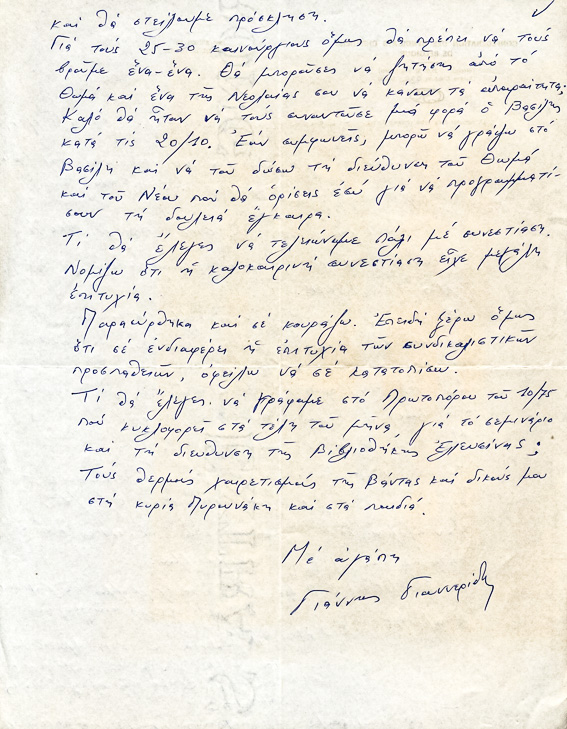 καὶ θὰ στείλουμε πρόσκληση.
Γιά τούς 25-30 καινούργιους ὅμως θά πρέπει νά τούς
βροῦμε ἕνα-ἕνα. Θά μποροῦσες νά ζητήσης ἀπό τό
Θωμά και ἕνα τῆς Νεολαίας σου νά κάνουν τά ἀπαραίτητα.
Καλό θά ἦταν νά τούς συναντοῦσε μιά φορά ὁ Βασίλης
κατά τίς 20/10. Ἐάν συμφωνεῖς, μπορῶ νά γράψω στό
Βασίλη καί νά τοῦ δώσω τή διεύθυνση τοῦ Θωμά
καί τοῦ Νέου πού θά ὁρίσεις ἐσύ γιά νά προγραμματί-
σουν τή δουλειά ἔγκαιρα.
Τί θά ἔλεγες νά τελειώναμε πάλι μέ συνεστίαση.
Νομίζω ὅτι ἡ καλοκαιρινή συνεστίαση εἶχε μεγάλη
ἐπιτυχία.
Παρασύρθηκα καί σέ κουράζω. Ἐπειδή ξέρω ὅμως
ὅτι σέ ἐνδιαφέρει ἡ ἐπιτυχία τῶν συνδικαλιστικῶν
προσπαθειῶν, ὀφείλω νά σέ κατατοπίσω.
Τί θά ἔλεγες νά γράψαμε στό Πρωτοπόρο τοῦ 10/75
πού κυκλοφορεῖ στά τέλη τοῦ μήνα, γιά τό σεμινάριο
καί τή διεύθυνση τῆς Βιβλιοθήκης Ἐλευσίνας;
Τούς θερμούς χαιρετισμούς τῆς Βάντας καί δικούς μου
στή κυρία Μυρωνάκη καί στά παιδιά.
Μέ ἀγάπη
Γιάννης Γιαννερίδης